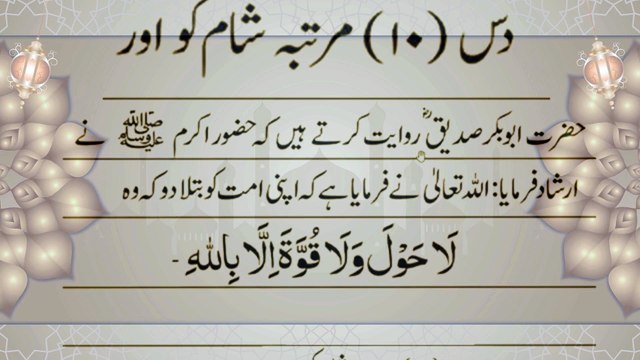 دس (۱۰) مرتبہ شام کو اور
حضرت ابوبکر صدیقؓ روایت کرتے ہیں کہ حضور اکرم ﷺ نے
ارشاد فرمایا: اللہ تعالیٰ نے فرمایا ہے کہ اپنی امت کو بتلا دو کہ وہ
لَا حَوْلَ وَلَا قُوَّةَ اِلَّا بِاللّٰهِ -